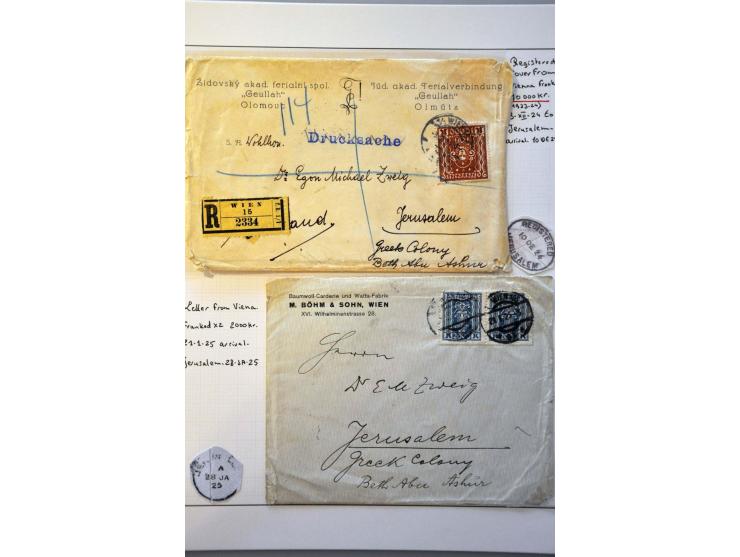 Židovský akad. ferialní spol.
„Geullah"
Olomouc
Jüd. akad. Ferialverbindung
„Geullah"
Olmütz
114
Drucksache
S. H. Wohlhrn.
Dr. Egon Michael Zweig
R
WIEN
15
2334
Jerusalem
Greek Colony
Beth Abu Ashur
Registered
cover From
Vienna Frank
10 000 Kr.
Jerusalem.
arrival. 10 DE 2
REGISTERED
10 DE 24
JERUSALEM
Letter From Viena.
Franked x2 2000kr.
21-1-25 arrival.
Jerusalem. 28-JA-25
A
28 JA
25
Baumwoll-Carderie und Watta-Fabrik
M. BÖHM & SOHN, WIEN
XVI. Wilhelminenstrasse 28.
Herrn
Dr E M Zweig
Jerusalem
Greek Colony
Beth Abu Ashur